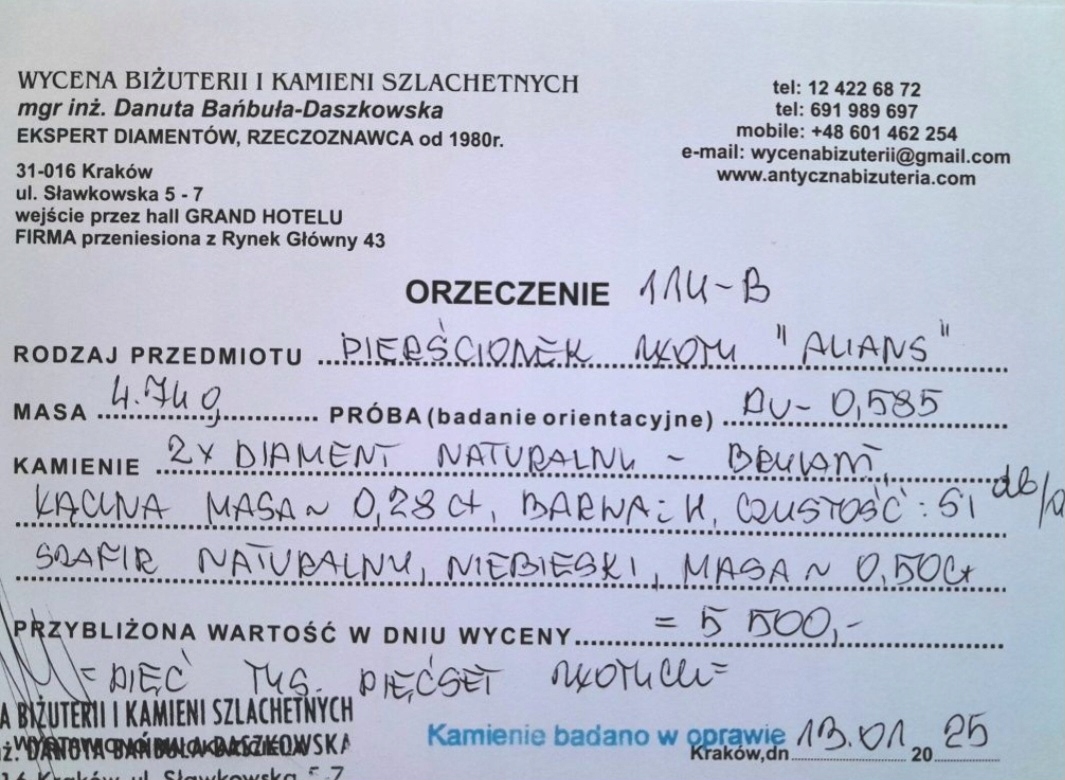 WYCENA BIŻUTERII I KAMIENI SZLACHETNYCH
mgr inż. Danuta Bańbuła-Daszkowska
EKSPERT DIAMENTÓW, RZECZOZNAWCA od 1980r.
31-016 Kraków
ul. Sławkowska 5 - 7
wejście przez hall GRAND HOTELU
FIRMA przeniesiona z Rynek Główny 43
tel: 12 422 68 72
tel: 691 989 697
mobile: +48 601 462 254
e-mail: wycenabizuterii@gmail.com
www.antycznabizuteria.com
ORZECZENIE 114-B
RODZAJ PRZEDMIOTU PIERŚCIONEK ZŁOTY "ALIANS"
MASA 4.74 g PRÓBA (badanie orientacyjne) AU- 0,585
KAMIENIE 2x DIAMENT NATURALNY - BRYLANT,
ŁĄCZNA MASA ~ 0,28 ct, BARWA: H, CZYSTOŚĆ: SI db/
SZAFIR NATURALNY, NIEBIESKI, MASA ~ 0,50ct
PRZYBLIŻONA WARTOŚĆ W DNIU WYCENY = 5 500,-
= PIĘĆ TYS. PIĘĆSET ZŁOTYCH =
A BIŻUTERII I KAMIENI SZLACHETNYCH
ż. DANUTA BAŃBUŁA-DASZKOWSKA
Kamienie badano w oprawie
Kraków,dn 13.01 20 25
16 Kraków ul. Sławkowska 5-7